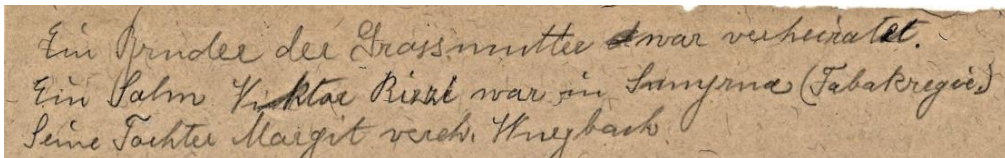 Ein Bruder der Grossmutter war verheiratet.
Ein Sohn Viktor Rizzi war in Smyrna (Tabakregie)
Seine Tochter Margit vereh.